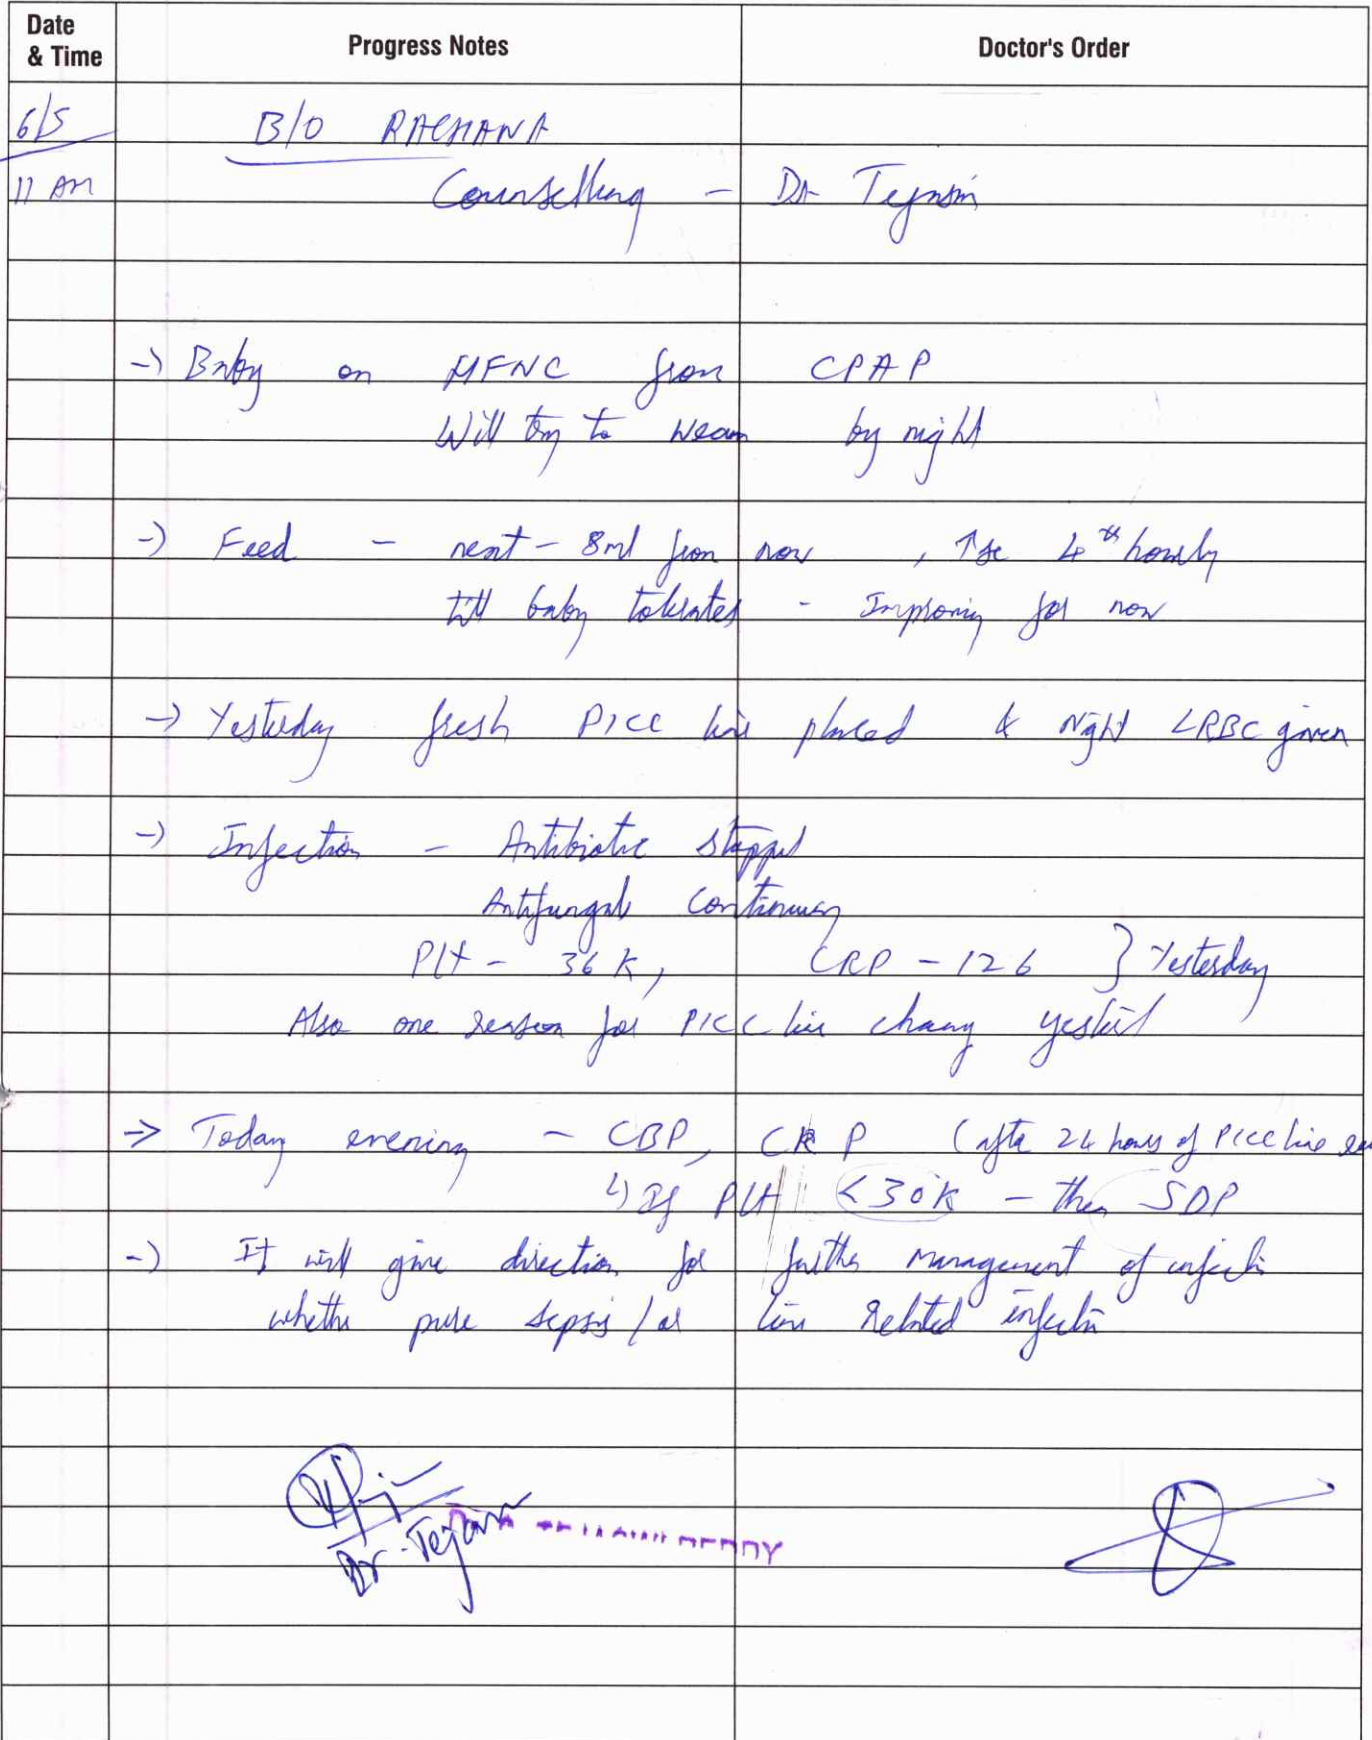 Date & Time Progress Notes Doctor's Order
6/5 B/O RACHANA
11 AM Counselling - Dr
-> Baby on HFNC from CPAP
Will try to wean by night
-> Feed - next - 8ml from now , ↑se 4th hourly
till baby tolerates - Improving for now
-> Yesterday fresh PICC line placed & night LRBC given
-> Infection - Antibiotic stopped
Antifungal continuing
Plt - 36 K, CRP - 126 } Yesterday
Also one reason for PICC line change
-> Today evening - CBP, CRP (after 24 hours of PICC line
↳ If Plt <30K - then SDP
-> It will give direction for further management of infection
whether pure sepsis / or line related infection
Dr.